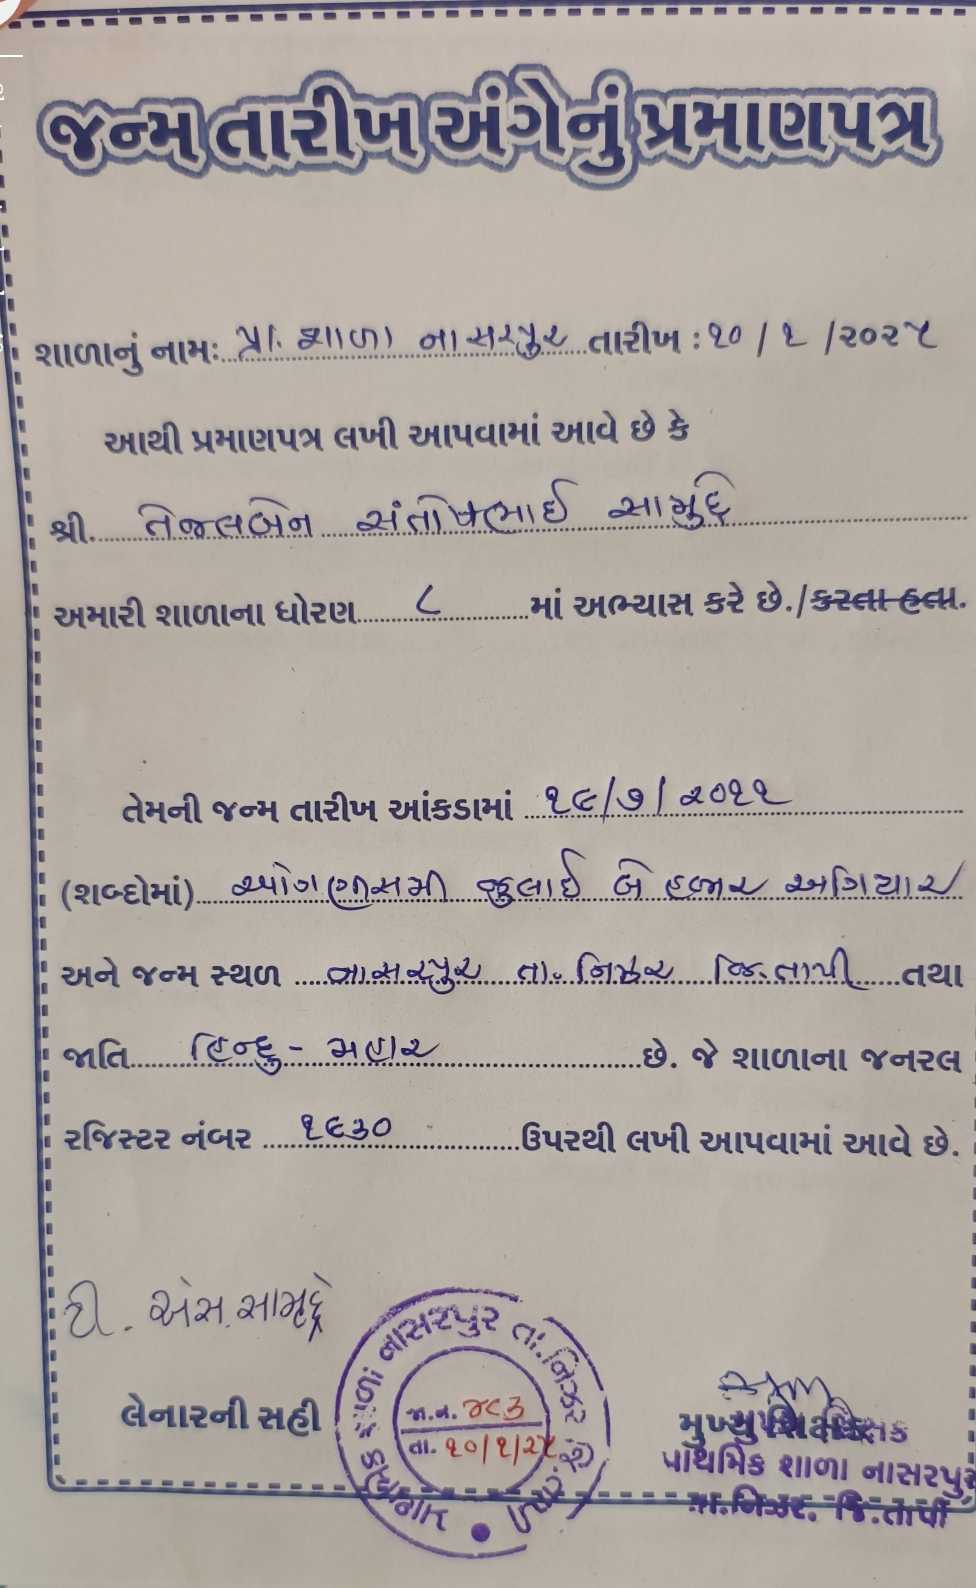 જન્મ તારીખ અંગેનું પ્રમાણપત્ર
શાળાનું નામઃ પ્રા. શાળા નાસરપુર તારીખ : ૧૦ / ૧ /૨૦૨૫
આથી પ્રમાણપત્ર લખી આપવામાં આવે છે કે
શ્રી. તેજલબેન સંતોષભાઈ સામુદ્રે
અમારી શાળાના ધોરણ ૮ માં અભ્યાસ કરે છે./કરતા હતા.
તેમની જન્મ તારીખ આંકડામાં ૧૯/૭/૨૦૧૧
(શબ્દોમાં) ઓગણીસમી જુલાઈ બે હજાર અગિયાર
અને જન્મ સ્થળ નાસરપુર તા. નિઝર જિ.તાપી તથા
જાતિ હિન્દુ - મહાર છે. જે શાળાના જનરલ
રજિસ્ટર નંબર ૧૯૩૦ ઉપરથી લખી આપવામાં આવે છે.
ટી. એસ. સામુદ્રે
લેનારની સહી
પ્રાથમિક શાળા નાસરપુર તા.નિઝર
જા.નં. ૪૯૩
તા. ૧૦/૧/૨૫
મુખ્ય શિક્ષક
પ્રાથમિક શાળા નાસરપુર
તા.નિઝર. જિ.તાપી